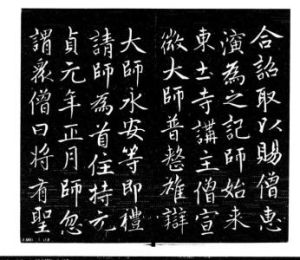 合詔取以賜僧惠
演為之記師始来
東土寺講主僧宣
微大師普整雄辯
大師永安等即禮
請師為首住持元
貞元年正月師忽
謂衆僧曰將有聖